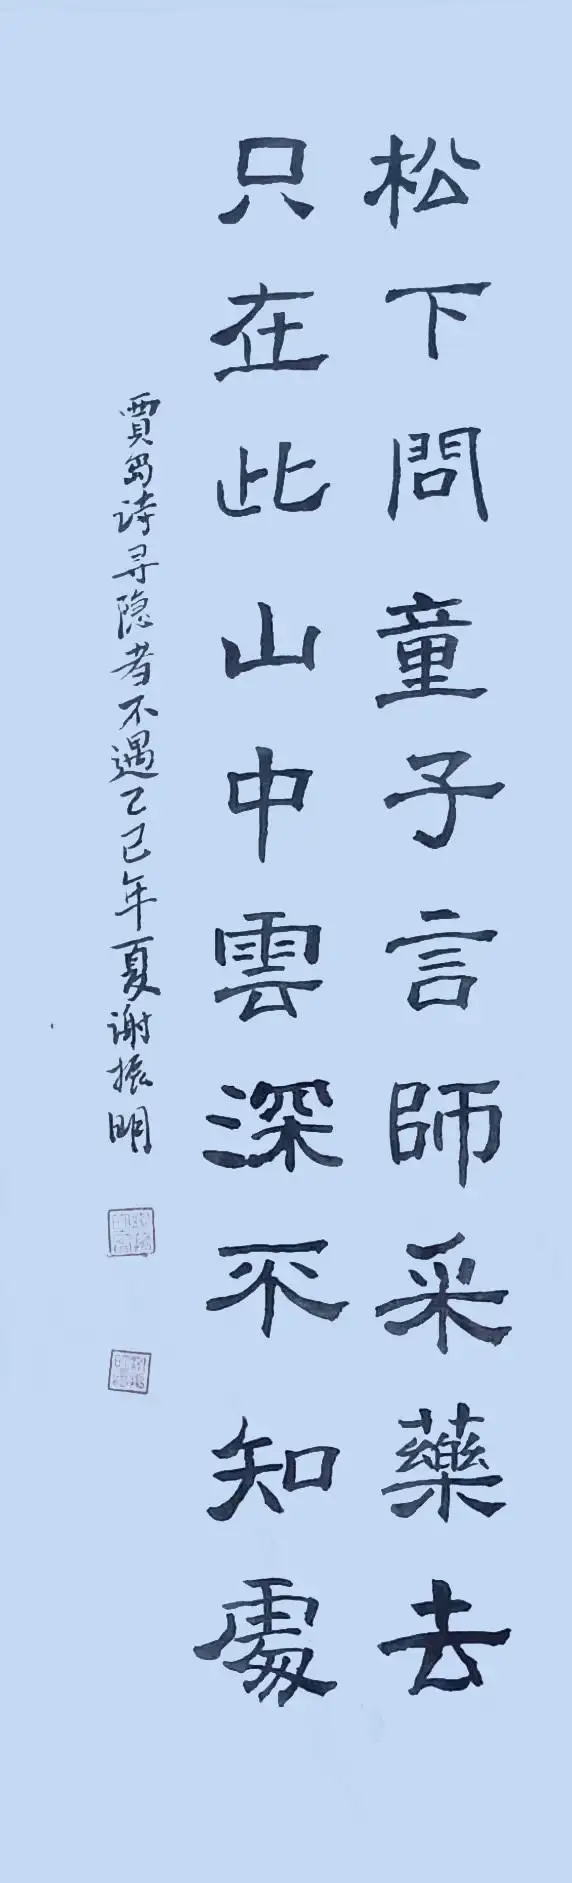 松下問童子言師采藥去
只在此山中雲深不知處
賈島诗寻隐者不遇乙巳年夏谢振明